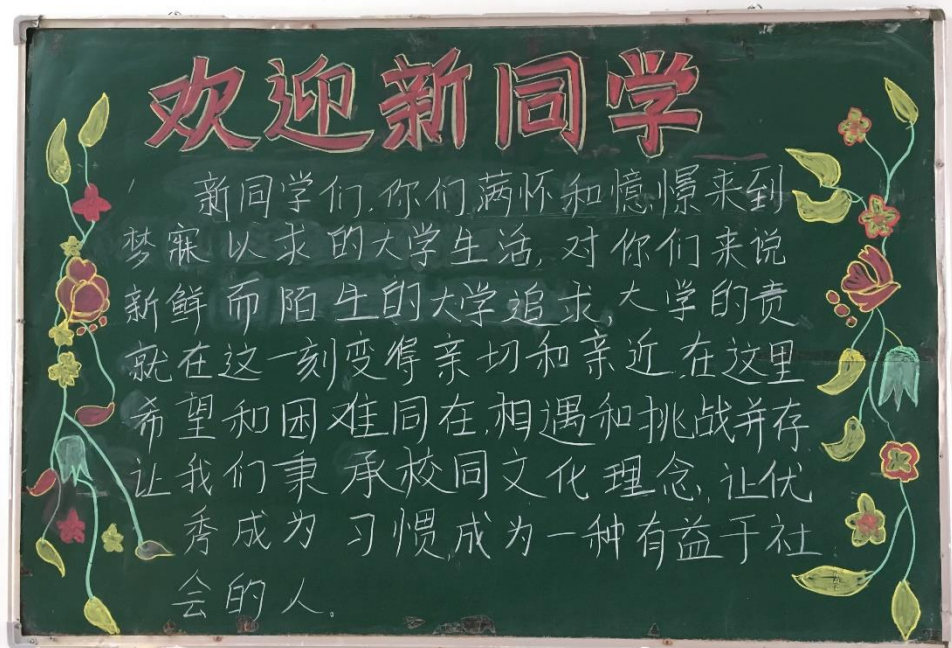 欢迎新同学
新同学们,你们满怀和憶憬来到
梦寐以求的大学生活,对你们来说
新鲜而陌生的大学追求,大学的责
就在这一刻变得亲切和亲近,在这里
希望和困难同在,相遇和挑战并存
让我们秉承校同文化理念,让优
秀成为习惯成为一种有益于社
会的人。